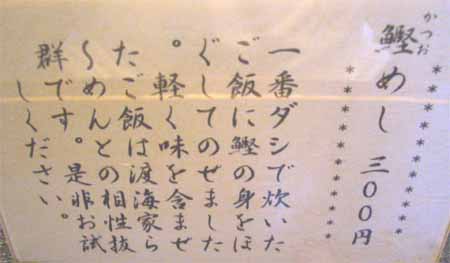 かつお
鰹めし 三〇〇円
一番ダシで炊いた
ご飯に鰹の身をほ
ぐしてのせました
。軽く味を含ませ
たご飯は渡海家ら
〜めんとの相性抜
群です。是非お試
しください。